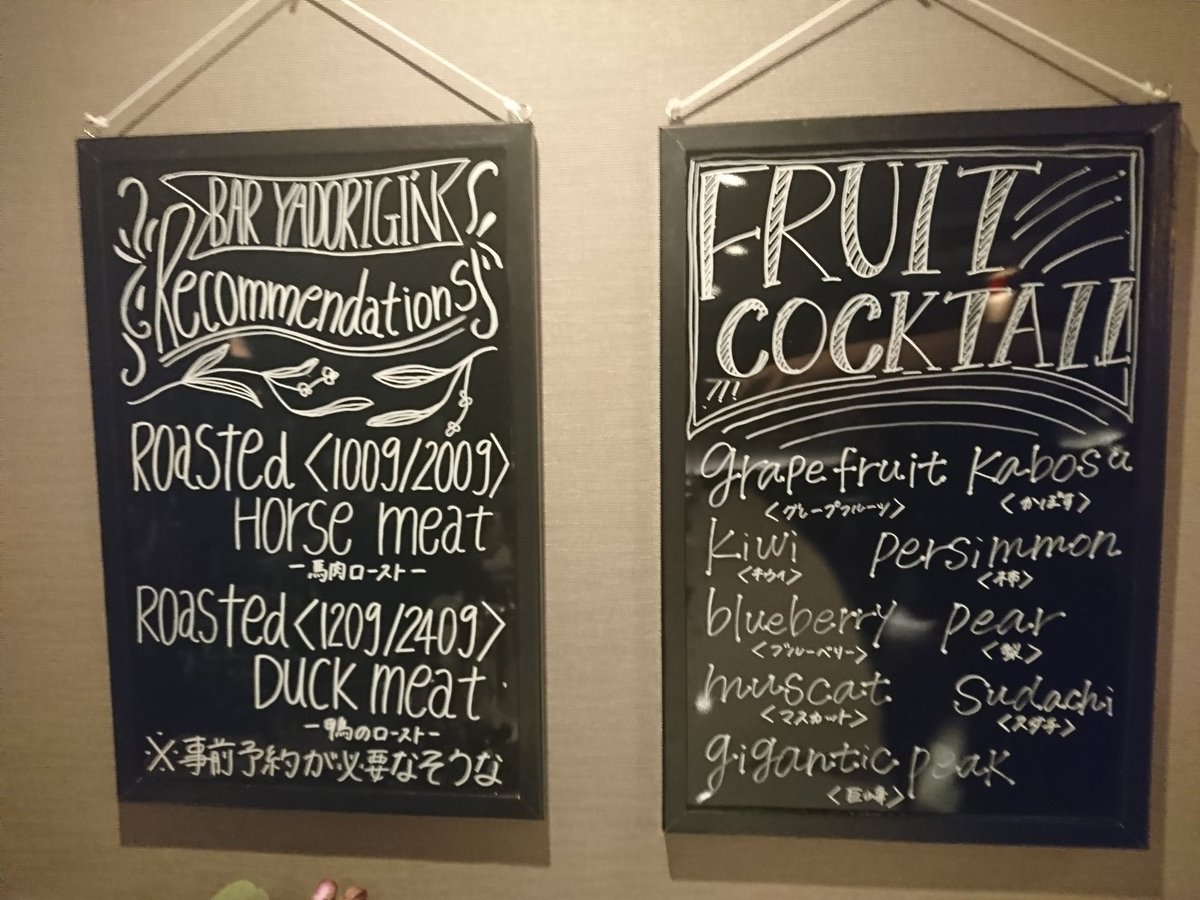 BAR YADORIGiN
Recommendations
Roasted <100g/200g>
Horse meat
ー馬肉ローストー
Roasted <120g/240g>
Duck meat
ー鴨のローストー
※事前予約が必要なそうな
FRUIT
COCKTAIL
grapefruit kabosu
<グレープフルーツ> <かぼす>
kiwi persimmon
<キウイ> <柿>
blueberry pear
<ブルーベリー> <梨>
muscat Sudachi
<マスカット> <スダチ>
gigantic peak
<巨峰>